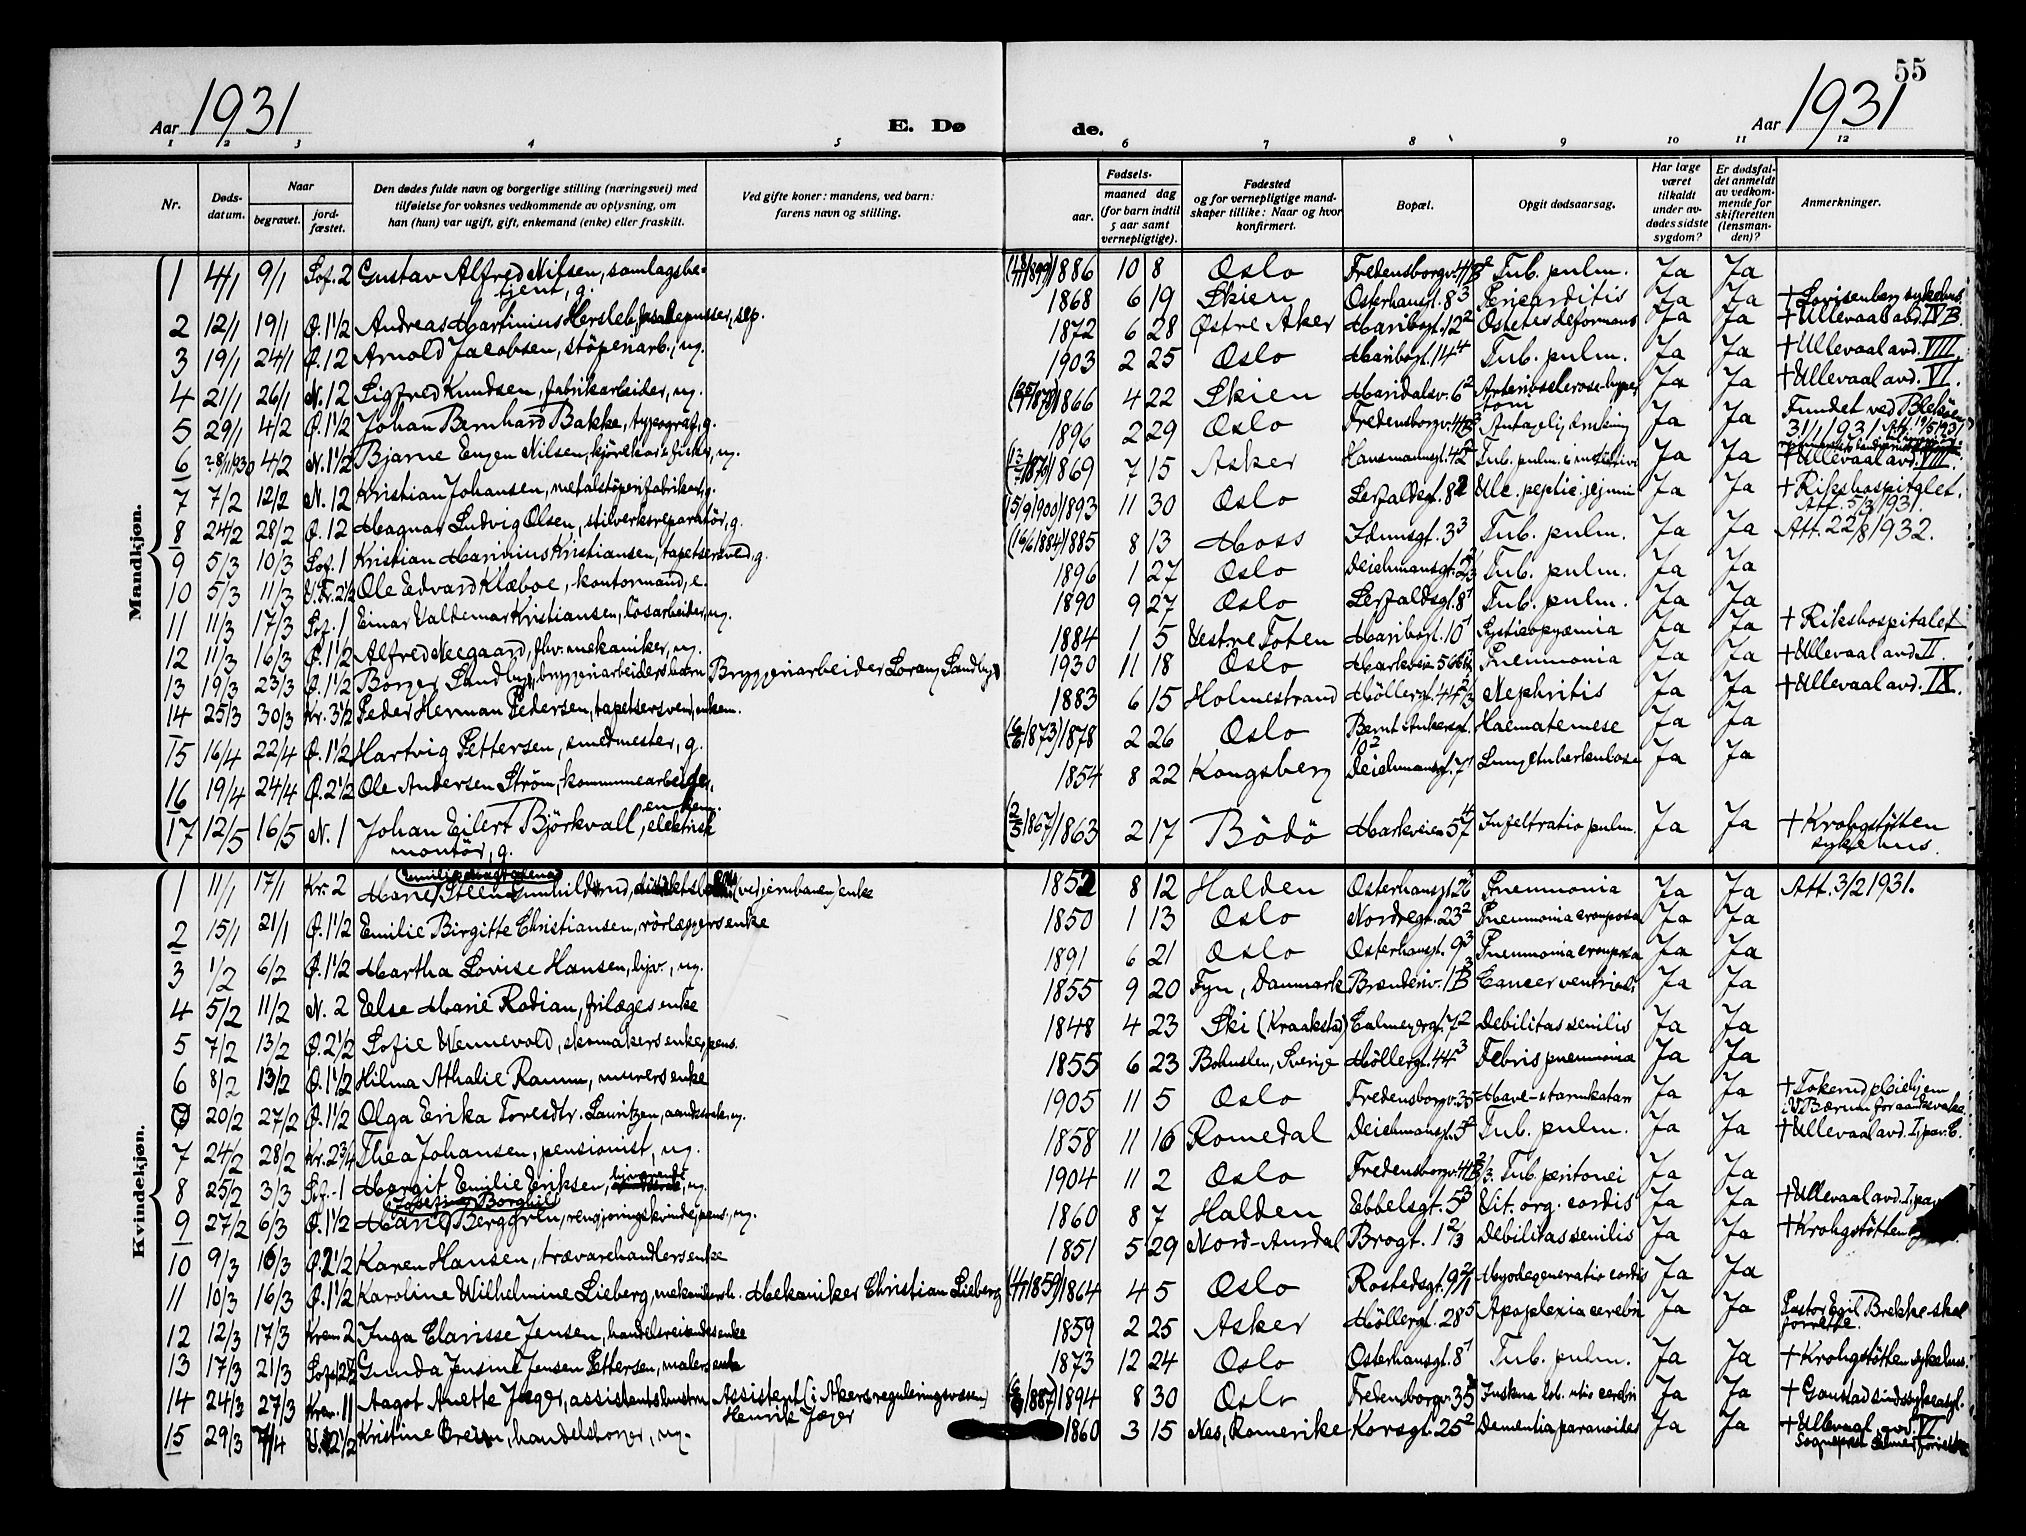 55
Aar 1931
E. Dø
de.
Aar 1931
1 2 3 4 5 6 7 8 9 10 11 12
Nr.
Døds-
datum.
Naar
begravet.
jord-
fæstet.
Den dødes fulde navn og borgerlige stilling (næringsvei) med
tilføielse for voksnes vedkommende av oplysning, om
han (hun) var ugift, gift, enkemand (enke) eller fraskilt.
Ved gifte koner: mandens, ved barn:
farens navn og stilling.
Fødsels-
aar.
maaned dag
(for barn indtil
5 aar samt
vernepligtige).
Fødested
og for vernepligtige mand-
skaper tillike: Naar og hvor
konfirmert.
Bopæl.
Opgit dødsaarsag.
Har læge
været
tilkaldt
under av-
dødes sidste
sygdom?
Er dødsfal-
det anmeldt
av vedkom-
mende for
skifteretten
(lensman-
den)?
Anmerkninger.
Mandkjøn.
1 4/1 9/1 Sof. 2 Gustav Alfred Nilsen, samlagsbe-
tjent, g. 1886 10 8 Oslo Fredensborgv. Tub. pulm. Ja Ja
2 12/1 19/1 Ø. 1 1/2 Andreas Martinius Hersleb, sep. 1868 6 19 Skien Osterhausgt. 8³ Pericarditis Ja Ja + Lovisenberg sykehus.
3 19/1 24/1 Ø. 12 Arnold Jacobsen, støpenarb., ug. 1872 6 28 Østre Aker Maribogt. 12² Ostetes deformans Ja Ja + Ullevaal avd. IV B.
4 21/1 26/1 N. 12 Sigfred Knudsen, fabrikarbeider, ug. 1903 2 25 Oslo Maribogt. 14⁴ Tub. pulm. Ja Ja + Ullevaal avd. VIII
5 29/1 4/2 Ø. 1 1/2 Johan Bernhard Bakke, typograf, g. 1866 4 22 Skien Maridalsv. 6² Arteriosclerose-hyper
toni Ja Ja + Ullevaal avd. VI.
6 4/2 N. 1 1/2 Bjarne Eugen Nilsen, ug. 1896 2 29 Oslo Fredensborgv. Antagelig drukning Ja Ja Fundet ved
31/1 1931
7 7/2 12/2 N. 12 Kristian Johansen, metalstøperifabrikant, g. 1869 7 15 Asker Hausmannsgt. 42² Tub. pulm. Ja Ja + Ullevaal avd. VIII.
8 24/2 28/2 Ø. 12 Magnar Ludvig Olsen, stilverksreparatør, g. (15/9 1900) 1893 11 30 Oslo Lerfaldsgt. 8 Ulc. peptic. jejuni Ja Ja + Rikshospitalet.
Att. 5/3 1931.
9 5/3 10/3 Sof. 1 Kristian Marinius Kristiansen, tapetsersvend, g. (16/6 1884) 1885 8 13 Moss Idunsgt. 3³ Tub. pulm. Ja Ja Att. 22/8 1932.
10 5/3 11/3 V. Fr. 2 1/2 Ole Edvard Klæboe, kontormand, e. 1896 1 27 Oslo Deichmansgt. Tub. pulm. Ja Ja
11 11/3 17/3 Sof. 1 Einar Valdemar Kristiansen, løsarbeider, ug. 1890 9 27 Oslo Lerfaldsgt. 8¹ Tub. pulm. Ja Ja
12 11/3 16/3 Ø. 1 1/2 Alfred Neegaard, fhv. mekaniker, ug. 1884 1 5 Vestre Toten Maribogt. 10¹ Systicopyæmia Ja Ja + Rikshospitalet
13 19/3 23/3 Ø. 1 1/2 Borger Sandby, bryggeriarbeidersbarn Bryggeriarbeider Lorang Sandby 1930 11 18 Oslo Markveien Pneumonia Ja Ja + Ullevaal avd. II.
14 25/3 30/3 Kr. 3 1/2 Peder Herman Pedersen, tapetsersvend, enkem. 1883 6 15 Holmestrand Møllergt. Nephritis Ja Ja + Ullevaal avd. IX.
15 16/4 22/4 Ø. 1 1/2 Hartvig Pettersen, smedmester, g. 1878 2 26 Oslo Bernt Ankersgt.
10² Haematemese Ja Ja
16 19/4 24/4 Ø. 2 1/2 Ole Andersen Strøm, kommunearbeider,
enkem. 1854 8 22 Kongsberg Deichmansgt. 7¹ Lungetuberkulose Ja Ja
17 12/5 16/5 N. 1 Johan Eilert Björkvall, elektrisk
montör, g. (2/5 1867) 1863 2 17 Bödö Markveien 57⁴ Infiltratio pulm. Ja Ja + Krohgstøtten
sykehus.
Kvindekjøn.
Emilie Magdalena
1 11/1 17/1 Kr. 2 Marie Steen (ved jernbanen) enke 1852 8 12 Halden Osterhausgt. Pneumonia Ja Ja Att. 3/2 1931.
2 15/1 21/1 Ø. 1 1/2 Emilie Birgitte Christiansen, rörlæggers enke 1850 1 13 Oslo Nordregt. 23² Pneumonia crouposa Ja Ja
3 1/2 6/2 Ø. 1 1/2 Martha Lovise Hansen, hjv., ug. 1891 6 21 Oslo Osterhausgt. 9³ Pneumonia crouposa Ja Ja
4 5/2 11/2 N. 2 Else Marie Rodian, enke 1855 9 20 Fyn, Danmark Brenneriv. 1 B³ Cancer ventriculi Ja Ja
5 7/2 13/2 Ø. 2 1/2 Sofie Wennevold, skomakers enke, pens. 1848 4 23 Ski (Kraakstad) Calmeyergt. 7² Debilitas senilis Ja Ja
6 8/2 13/2 Ø. 1 1/2 Hilma Athalie Ramm, murers enke 1855 6 23 Bohuslen, Sverige Møllergt. 44³ Febris pneumonia Ja Ja
7 20/2 27/2 Ø. 1 1/2 Olga Erika Toresdtr. Lauritzen, aandssvak, ug. 1905 11 5 Oslo Fredensborgv. 35 Mave-tarmkatarr Ja Ja + Tokerud pleiehjem
i V. Bærum for aandssvake
7 24/2 28/2 Kr. 2 3/4 Thea Johansen, pensionist, ug. 1858 11 16 Romedal Deichmansgt. 5² Tub. pulm. Ja Ja + Ullevaal avd. I, pav. C.
8 25/2 3/3 Sof. 1 Margit Emilie Eriksen, hjemmevær., ug. 1904 11 2 Oslo Fredensborgv. Tub. peritonei Ja Ja
Josefine Borghild
9 27/2 6/3 Ø. 1 1/2 Marie Berggren, rengjøringskvinde, pens., ug. 1860 8 7 Halden Ebbelsgt. 5³ Vit. org. cordis Ja Ja + Ullevaal avd. I, pav.
10 9/3 16/3 Ø. 2 1/2 Karen Hansen, trævarehandlers enke 1851 5 29 Nord-Aurdal Brogt. 1 2/3 Debilitas senilis Ja Ja + Krohgstøtten
11 10/3 16/3 Ø. 1 1/2 Karoline Wilhelmine Lieberg, mekanikerh. Mekaniker Christian Lieberg 1864 4 5 Oslo Rostedsgt. Myodegeneratio cordis Ja Ja
12 12/3 17/3 Krem 2 Inga Clarisse Jensen, handelsreisendes enke 1859 2 25 Asker Møllergt. 28⁵ Apoplexia cerebri Ja Ja Pastor Egil Brekke skal
forrette.
13 17/3 21/3 Sof. 12 1/2 Gunda Jensine Jensen Pettersen, malers enke 1873 12 24 Oslo Osterhausgt. 8¹ Tub. pulm. Ja Ja + Krohgstøtten sykehus.
14 24/3 27/3 Krem. 11 Aagot Anette Jæger, assistentshustru Assistent (i Akers reguleringsvæsen)
Henrik Jæger 1894 8 30 Oslo Fredensborgv. 35 cerebri Ja Ja + Gaustad sindssykeasyl.
15 29/3 7/4 2 1/2 Kristine Breien, handelsborger, ug. 1860 3 15 Nes, Romerike Korsgt. 25² Dementia paranoides Ja Ja + Ullevaal avd. VI